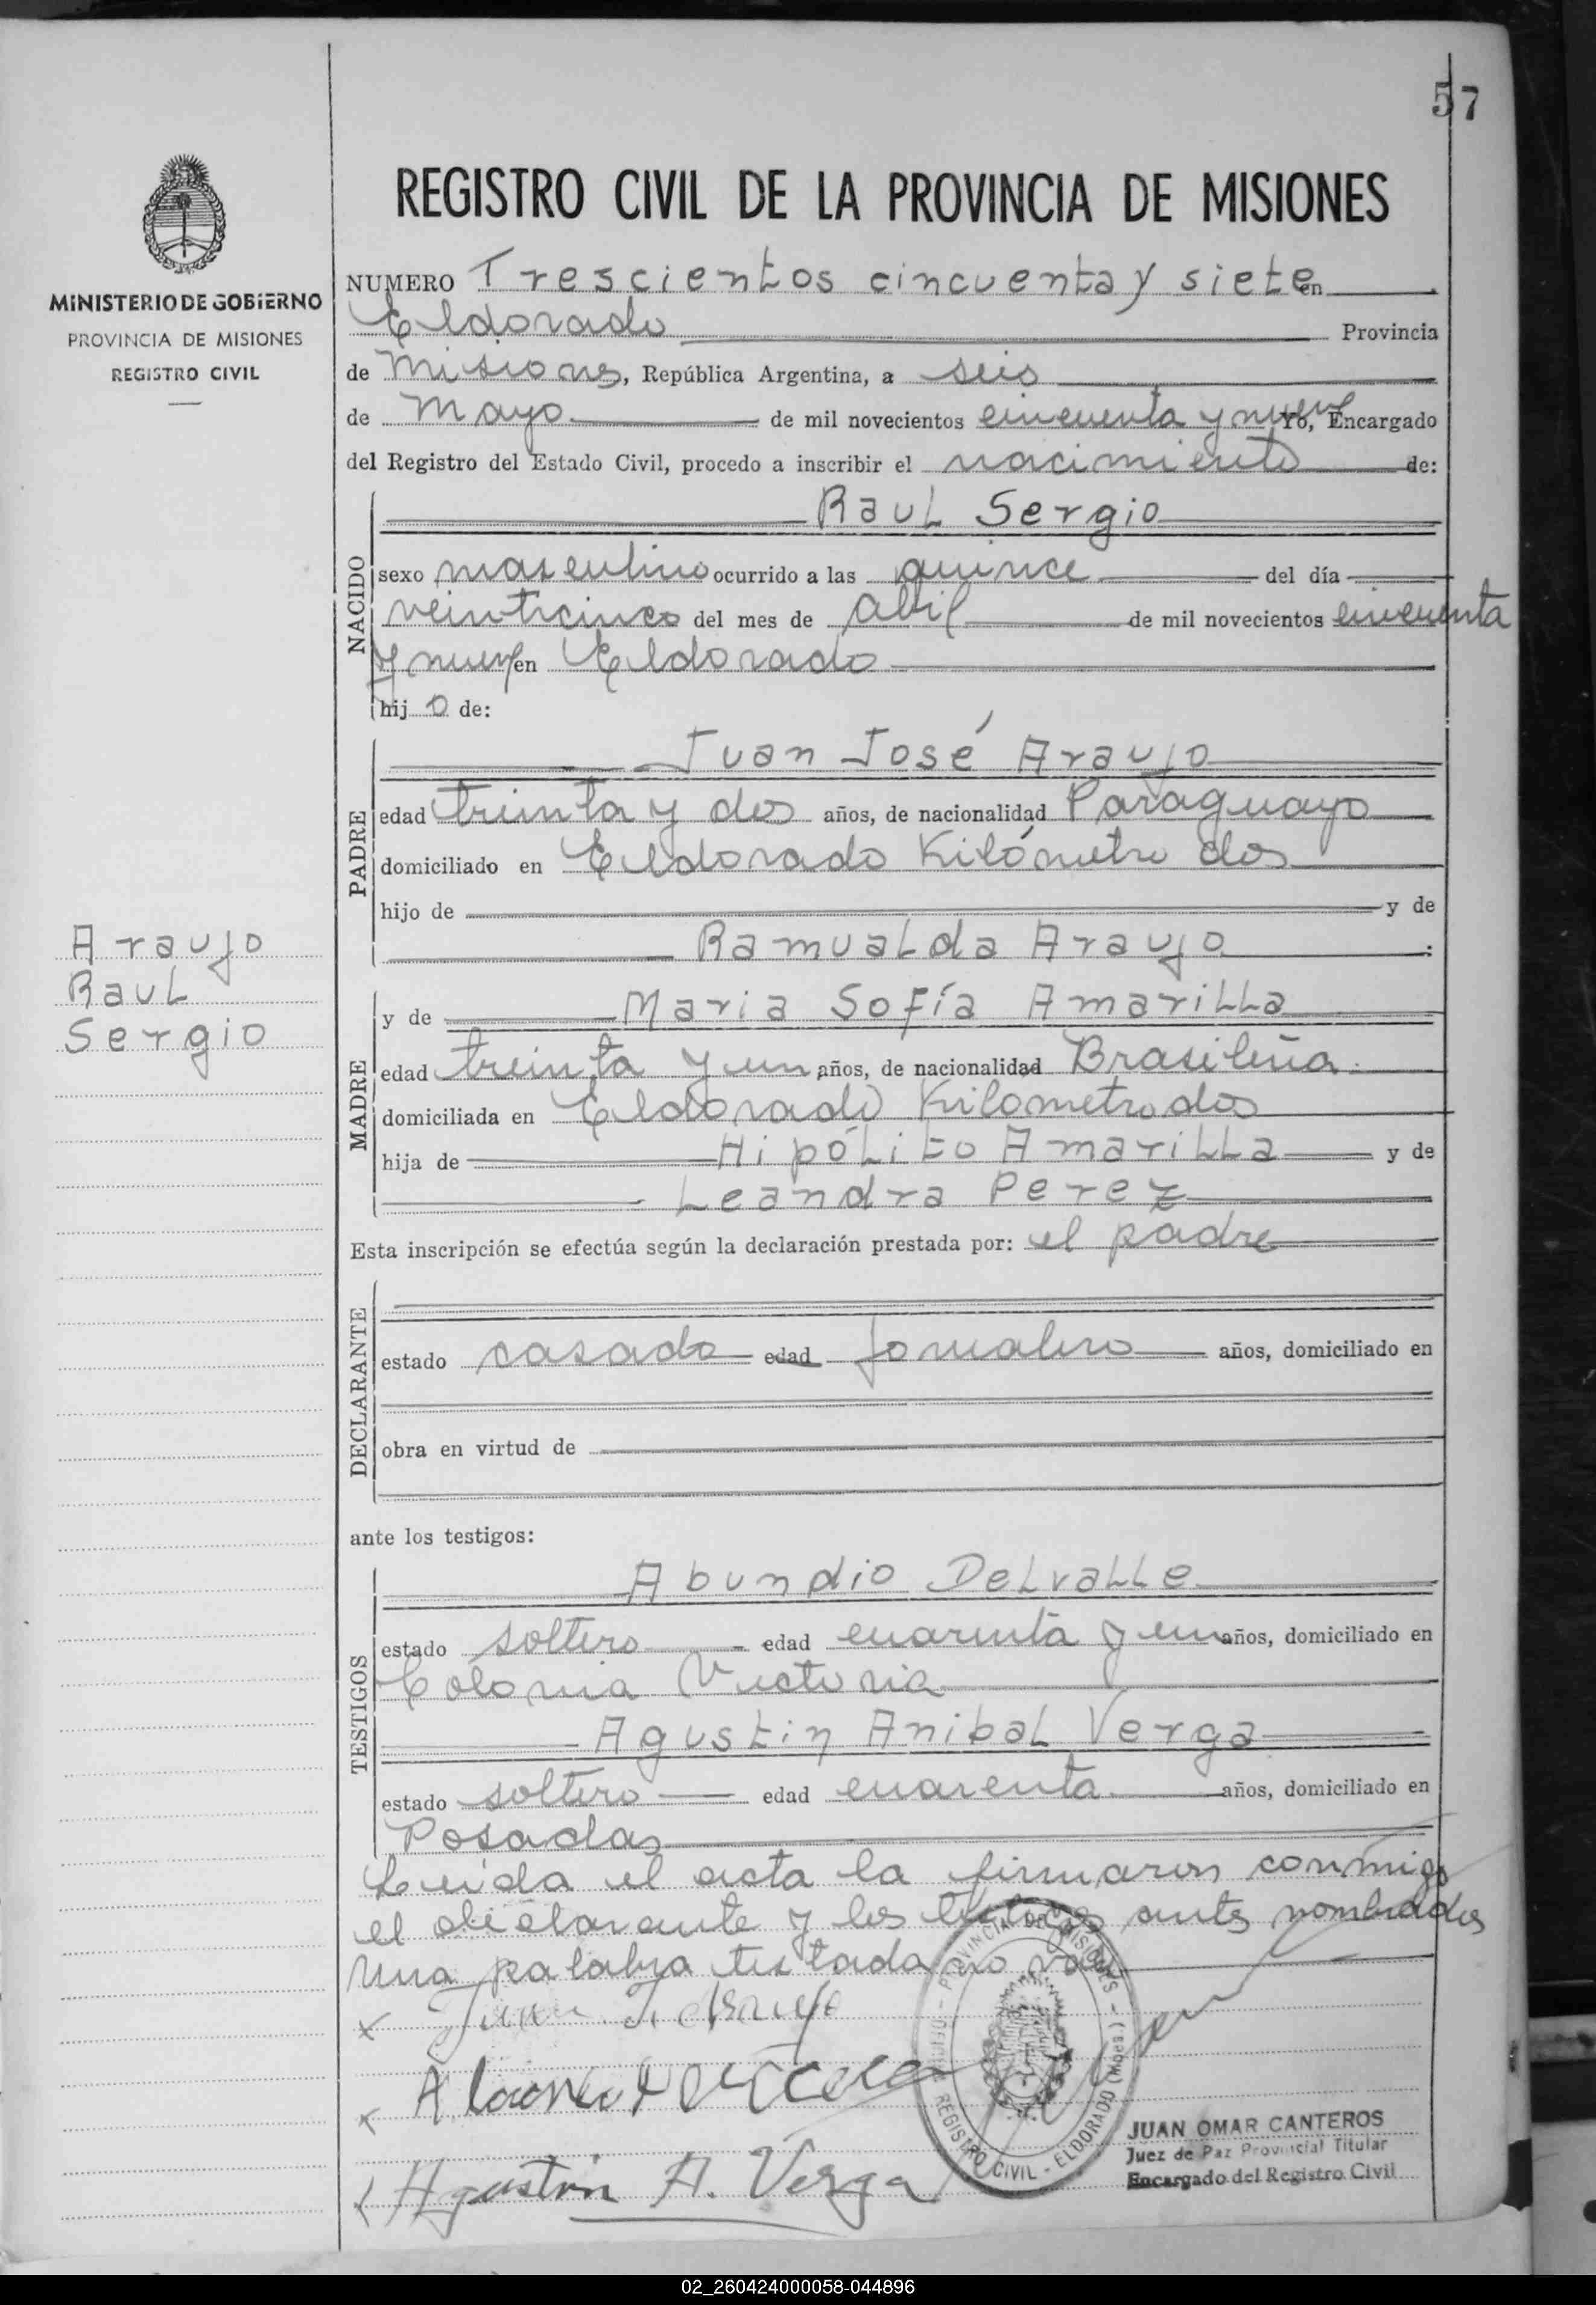 57
REGISTRO CIVIL DE LA PROVINCIA DE MISIONES
MINISTERIO DE GOBIERNO
PROVINCIA DE MISIONES
REGISTRO CIVIL
NUMERO Trescientos cincuenta y siete en
Eldorado Provincia
de Misiones, República Argentina, a seis
de Mayo de mil novecientos cincuenta y nueve Yo, Encargado
del Registro del Estado Civil, procedo a inscribir el nacimiento de:
NACIDO
Raul Sergio
sexo masculino ocurrido a las quince del día
veinticinco del mes de abril de mil novecientos cincuenta
y nueve en Eldorado
hijo de:
PADRE
Juan José Araujo
edad treinta y dos años, de nacionalidad Paraguayo
domiciliado en Eldorado Kilómetro dos
hijo de y de
Ramualda Araujo :
Araujo
Raul
Sergio
MADRE
y de Maria Sofía Amarilla
edad treinta y un años, de nacionalidad Brasileña
domiciliada en Eldorado Kilometro dos
hija de Hipólito Amarilla y de
Leandra Perez
Esta inscripción se efectúa según la declaración prestada por: el padre
DECLARANTE
estado casado edad Jornalero años, domiciliado en
obra en virtud de
ante los testigos:
TESTIGOS
Abundio Delvalle
estado soltero edad cuarenta y un años, domiciliado en
Colonia Victoria
Agustin Anibal Verga
estado soltero edad cuarenta años, domiciliado en
Posadas
Leida el acta la firmaron conmigo
el declarante y los testigos antes nombrados
Una palabra testada no vale
x Juan J. Araujo
x
x Agustin A. Verga
PROVINCIA DE MISIONES
REGISTRO CIVIL - ELDORADO (Mnes.)
JUAN OMAR CANTEROS
Juez de Paz Provincial Titular
Encargado del Registro Civil
02_260424000058-044896